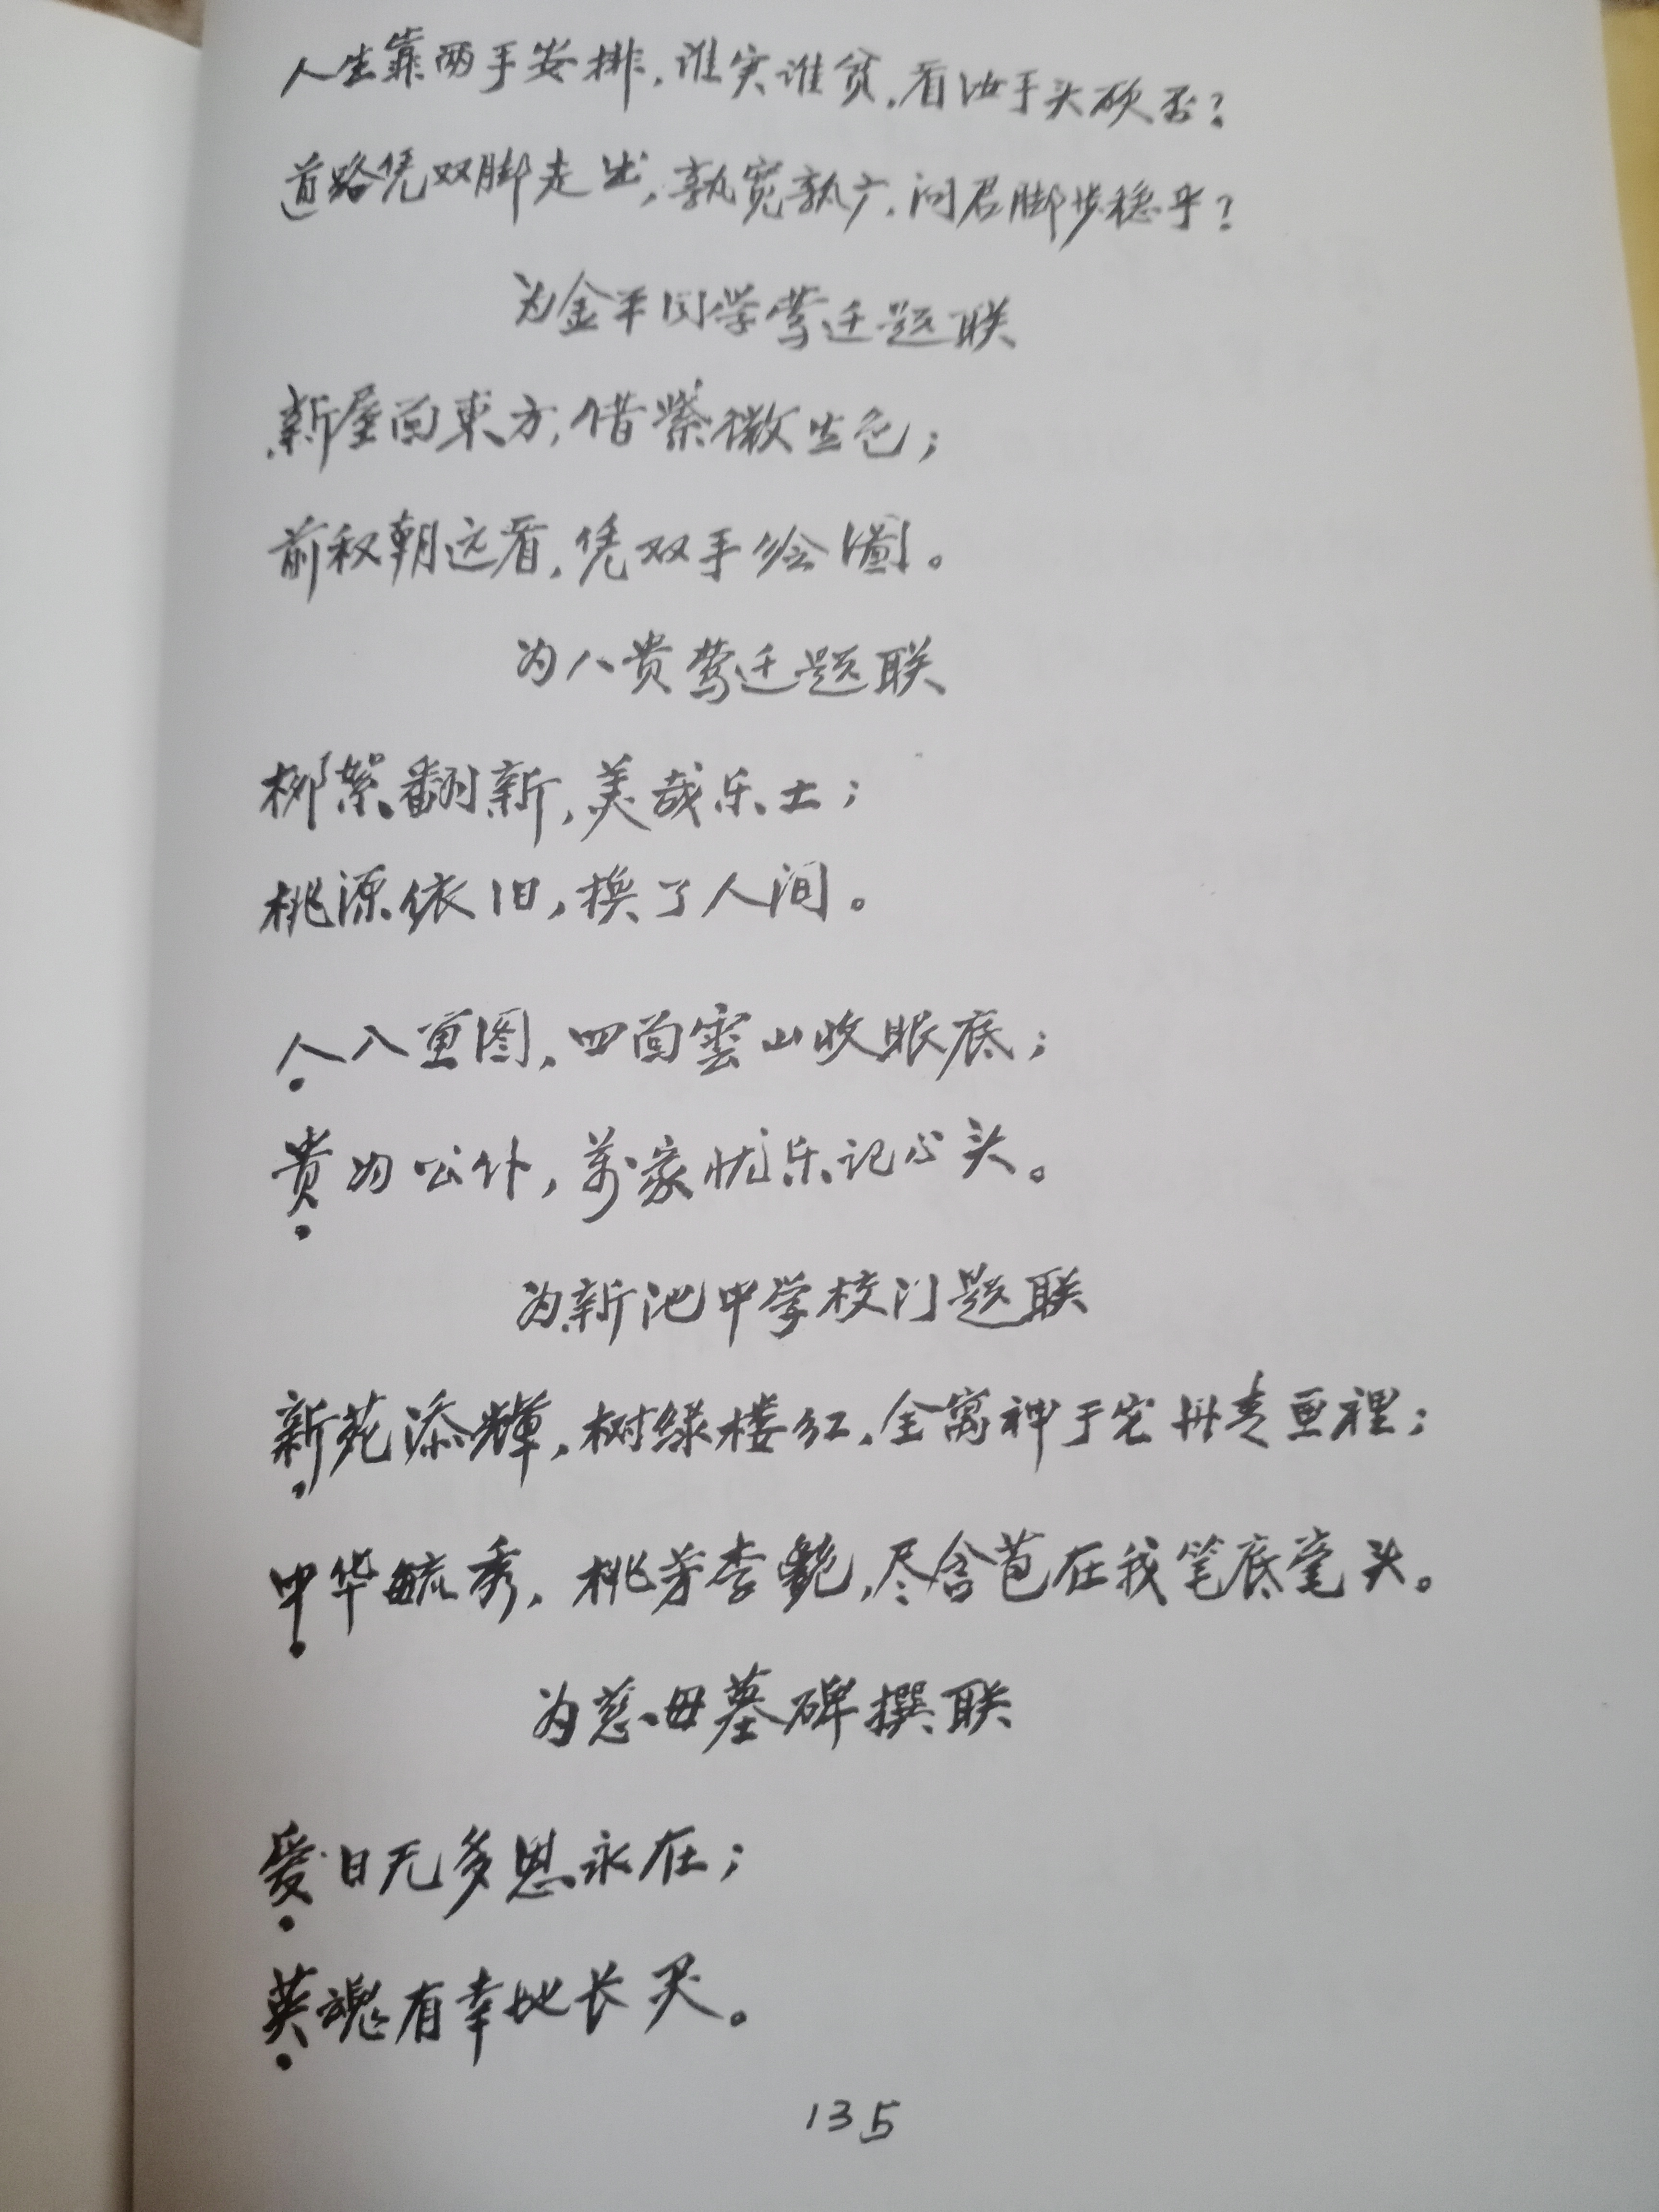 人生靠两手安排,谁实谁贫,看汝手头硬否?
道路凭双脚走出,孰宽孰广,问君脚步稳乎?
为金平同学莺迁题联
新屋面東方,借紫微生色;
前程朝远看,凭双手绘圖。
为八贵莺迁题联
柳絮翻新,美哉乐土;
桃源依旧,换了人间。
八重图,四面雲山收眼底;
贵为公仆,萬家忧乐记心头。
为新池中学校门题联
新苑添輝,树绿楼红,全寓神于它丹青画裡;
中华毓秀,桃芳李艳,尽含苞在我笔底毫头。
为慈母墓碑撰联
爱日无多恩永在;
英魂有幸地长灵。
135